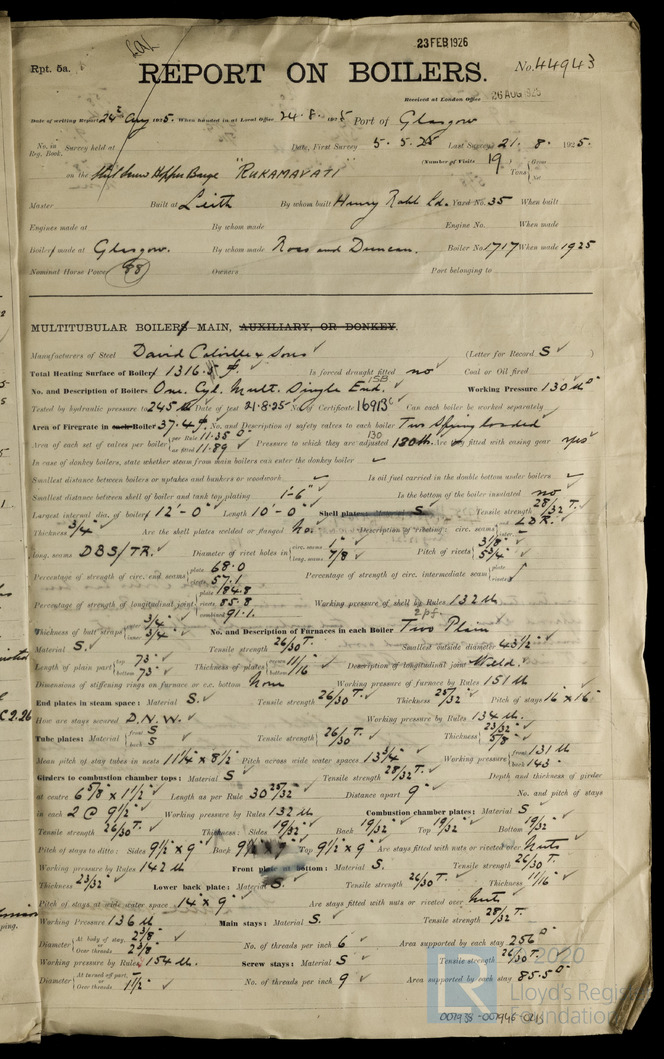 23 FEB 1926
Rpt. 5a.
REPORT ON BOILERS.
No. 44943
Received at London Office 26 AUG 1925
Date of writing Report 24th Aug 1925. When handed in at Local Office 24. 8. 1925 Port of Glasgow
No. in Reg. Book. Survey held at Date, First Survey 5. 5. 25 Last Survey 21. 8. 1925.
(Number of Visits 19) Tons Gross Net
on the Steel Screw Hopper Barge "RUKAMAVATI"
Master Built at Leith By whom built Henry Robb Ld. Yard No. 35 When built
Engines made at By whom made Engine No. When made
Boilers made at Glasgow. By whom made Ross and Duncan. Boiler No. 1717 When made 1925
Nominal Horse Power 88 Owners Port belonging to
MULTITUBULAR BOILERS MAIN, AUXILIARY, OR DONKEY.
Manufacturers of Steel David Colville & Sons (Letter for Record S )
Total Heating Surface of Boilers 1316.5 Is forced draught fitted no Coal or Oil fired
No. and Description of Boilers One. Cyl. Mult. Single End. Working Pressure 130 lb
Tested by hydraulic pressure to 245 lb Date of test 21.8.25 No. of Certificate 16913 Can each boiler be worked separately
Area of Firegrate in each Boiler 37.4 No. and Description of safety valves to each boiler Two Spring loaded
Area of each set of valves per boiler per Rule 11.35 as fitted 11.89 Pressure to which they are adjusted 130 Are they fitted with easing gear yes
In case of donkey boilers, state whether steam from main boilers can enter the donkey boiler
Smallest distance between boilers or uptakes and bunkers or woodwork Is oil fuel carried in the double bottom under boilers
Smallest distance between shell of boiler and tank top plating 1'-6" Is the bottom of the boiler insulated no
Largest internal dia. of boilers 12'-0" Length 10'-0" Shell plates: S Tensile strength 28/32 T.
Thickness 3/4" Are the shell plates welded or flanged No. Description of riveting: circ. seams end LDR. inter
long. seams DBS/TR. Diameter of rivet holes in circ. seams 1" long. seams 7/8" Pitch of rivets 3 1/8" 5 3/4"
Percentage of strength of circ. end seams plate 68.0 rivets 57.1 Percentage of strength of circ. intermediate seam plate rivets
Percentage of strength of longitudinal joint plate 84.8 rivets 85.8 combined 91.1. Working pressure of shell by Rules 132 lb
Thickness of butt straps 3/4" 3/4" No. and Description of Furnaces in each Boiler Two Plain
Material S. Tensile strength 26/30 T. Smallest outside diameter 43 1/2"
Length of plain part top 73" bottom 73" Thickness of plates 11/16" Description of longitudinal joint Weld.
Dimensions of stiffening rings on furnace or c.c. bottom None Working pressure of furnace by Rules 151 lb
End plates in steam space: Material S. Tensile strength 26/30 T. Thickness 25/32" Pitch of stays 16" x 16"
How are stays secured D.N.W. Working pressure by Rules 134 lb.
Tube plates: Material front S back S Tensile strength 26/30 T. Thickness 23/32" 5/8"
Mean pitch of stay tubes in nests 11 1/4" x 8 1/2" Pitch across wide water spaces 13 3/4" Working pressure front 131 lb back 143"
Girders to combustion chamber tops: Material S Tensile strength 28/32 T. Depth and thickness of girder
at centre 6 5/8" x 1 1/2" Length as per Rule 30 25/32" Distance apart 9" No. and pitch of stays
in each 2 @ 9 1/2" Working pressure by Rules 132 lb Combustion chamber plates: Material S
Tensile strength 26/30 T. Thickness: Sides 19/32" Back 19/32" Top 19/32" Bottom 19/32"
Pitch of stays to ditto: Sides 9 1/2" x 9" Back 9 1/2" x 9" Top 9 1/2" x 9" Are stays fitted with nuts or riveted over Nuts
Working pressure by Rules 142 lb Front plate at bottom: Material S. Tensile strength 26/30 T.
Thickness 23/32" Lower back plate: Material S. Tensile strength 26/30 T. Thickness 11/16"
Pitch of stays at wide water space 14" x 9" Are stays fitted with nuts or riveted over Nuts
Working Pressure 136 lb Main stays: Material S. Tensile strength 28/32 T.
Diameter At body of stay, or Over threads 2 3/8" 2 3/8" No. of threads per inch 6 Area supported by each stay 256
Working pressure by Rules 154 lb. Screw stays: Material S Tensile strength 26/30 T.
Diameter At turned off part, or Over threads 1 1/2" No. of threads per inch 9 Area supported by each stay 85.5
© 2020
Lloyd's Register
Foundation
001938-001946-0215